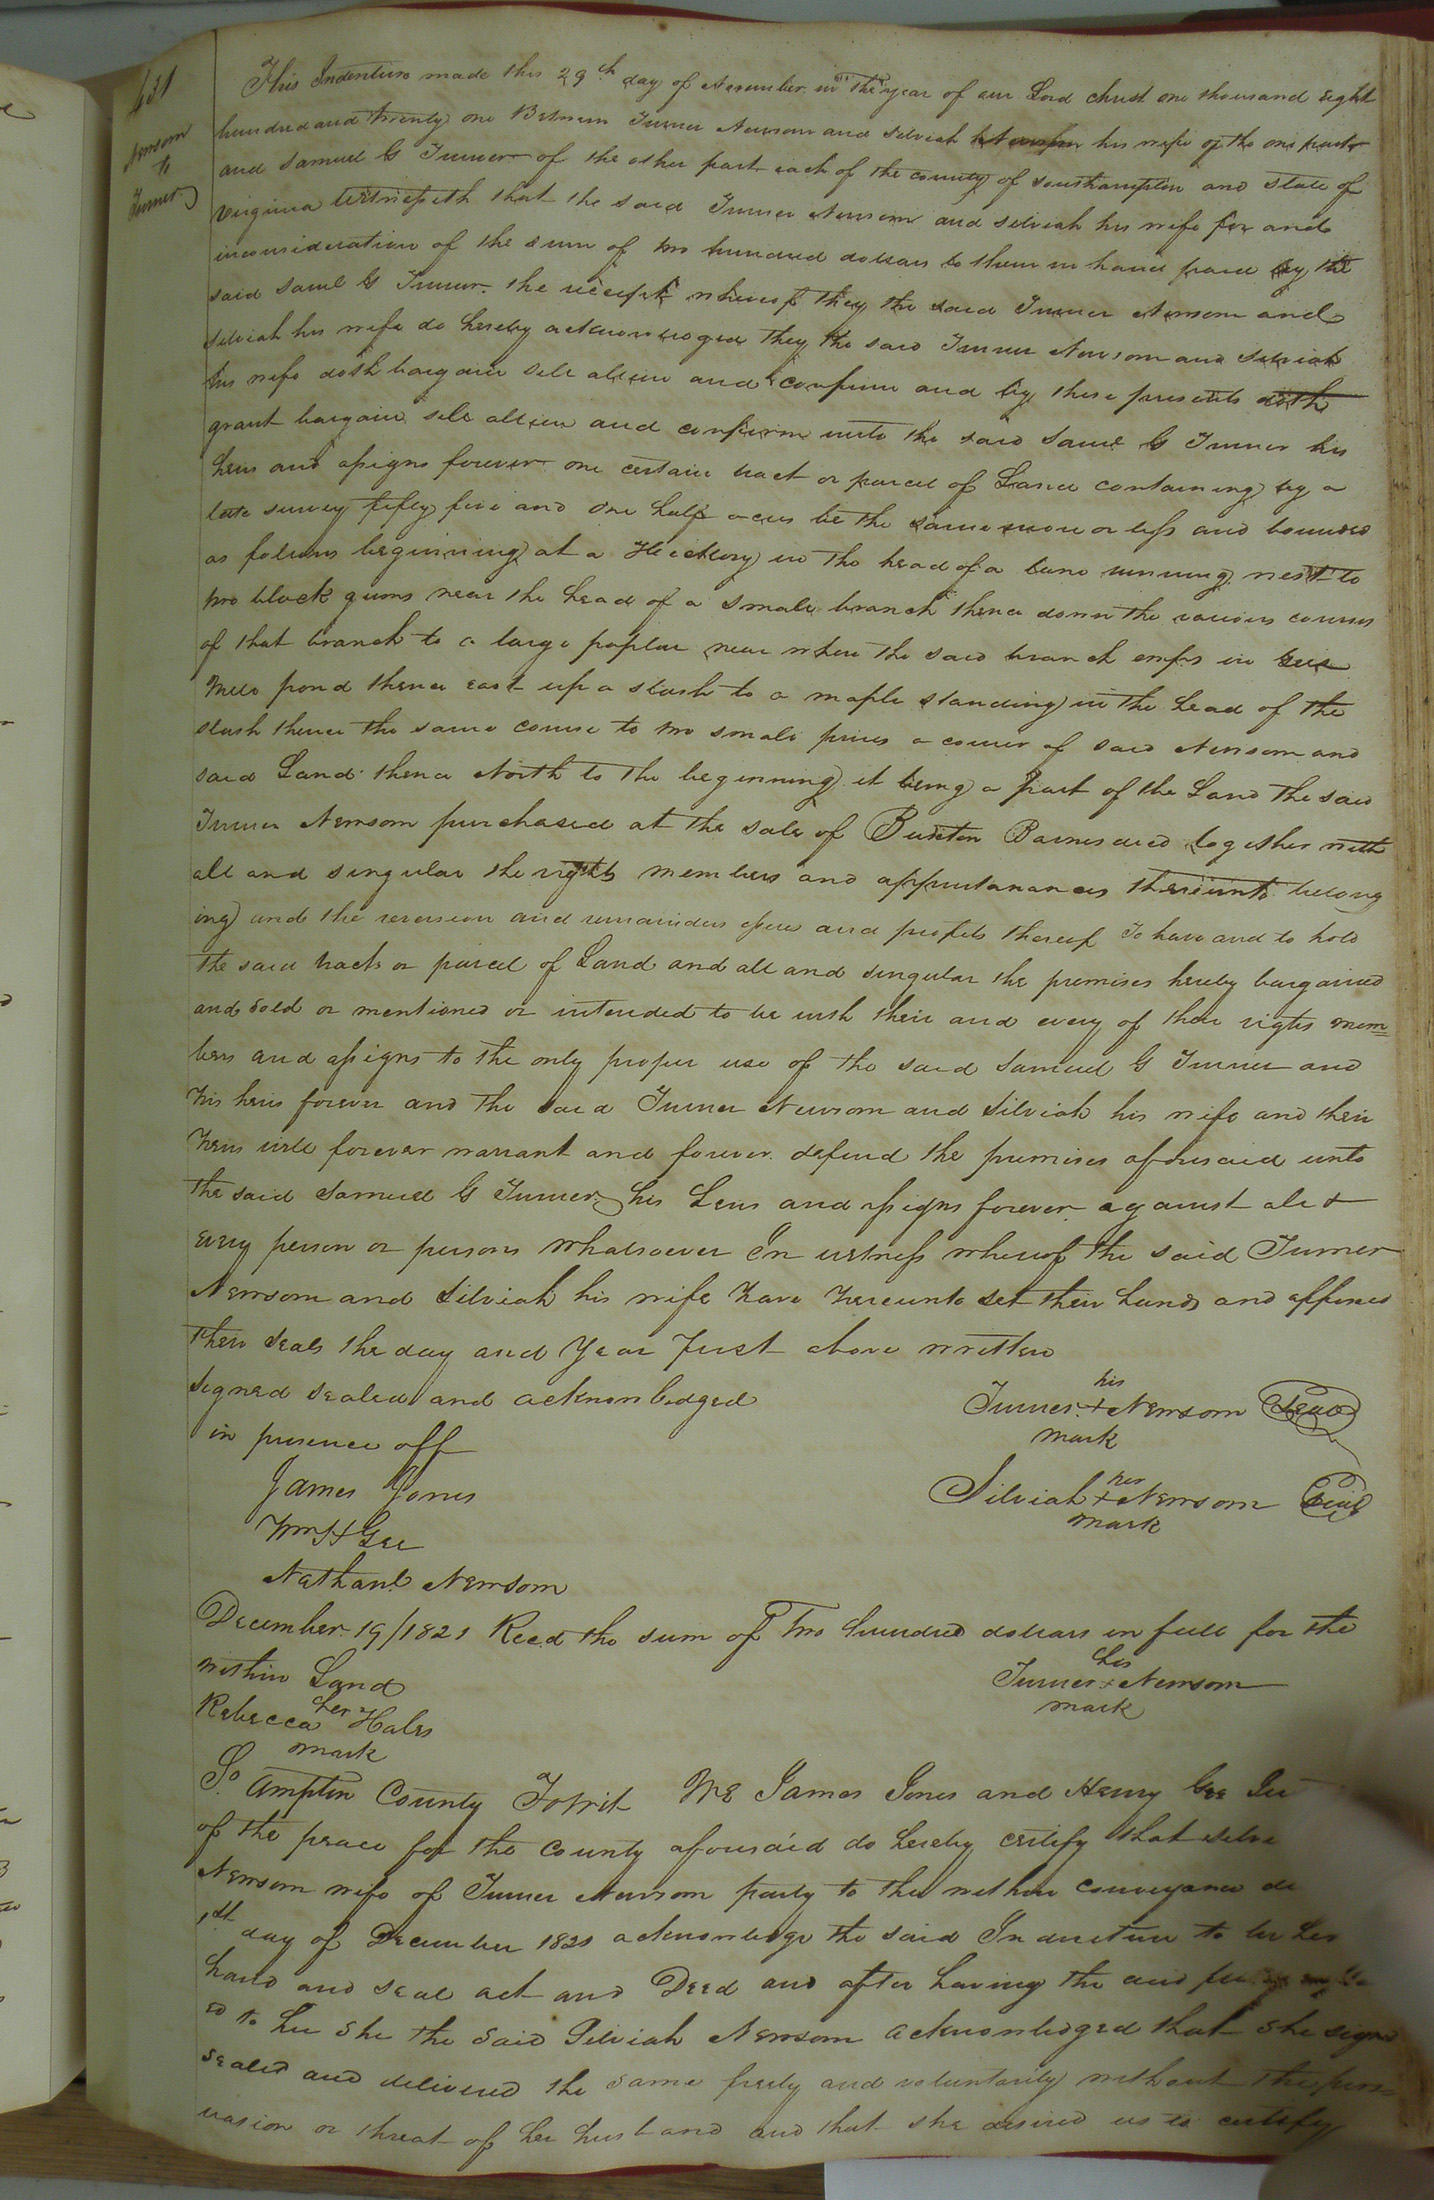 431
Newsom
to
Turner
This Indenture made this 29th day of November in the year of our Lord christ one thousand Eight
hundred and twenty one Between Turner Newsom and Silviah his wife of the one part
and Samuel G Turner of the other part each of the county of Southampton and state of
Virginia Witnesseth that the said Turner Newsom and Silviah his wife for and
inconsideration of the sum of two hundred dollars to them in hand paid by the
said Saml G Turner the receipt whereof they the said Turner Newsom and
Silviah his wife do hereby acknowledged they the said Turner Newsom and Silviah
his wife doth bargain sell alien and confirm and by these presents doth
grant bargain sell alien and confirm unto the said Saml G Turner his
heirs and assigns forever one certain tract or parcel of Land containing by a
late survey fifty five and one half acres be the same more or less and bounded
as follows beginning at a Hickory in the head of a lane running west to
two black gums near the head of a small branch thence down the various courses
of that branch to a large poplar near where the said branch emps in
Mill pond thence east up a slash to a maple standing in the head of the
slash thence the same course to two small pines a corner of said Newsom and
said Land thence North to the beginning it being a part of the Land the said
Turner Newsom purchased at the sale of Buxton Barnes decd together with
all and singular the rights members and appurtanances thereunto belong
ing and the reversion and remainders issues and profits thereof To have and to hold
the said tract or parcel of Land and all and singular the premises hereby bargained
and sold or mentioned or intended to be with their and every of their rigts mem=
bers and assigns to the only proper use of the said Samuel G Turner and
his heirs forever and the said Turner Newsom and Silviah his wife and their
heirs will forever warrant and forever defend the premises aforesaid unto
the said Samuel G Turner his heirs and assigns forever against all &
every person or persons whatsoever In witness whereof the said Turner
Newsom and Silviah his wife have hereunto set their hands and affixed
their seals the day and year first above written
signed sealed and acknowledged
in presence off
his
Turner + Newsom Seal
mark
James Jones
her
Silviah + Newsom Seal
mark
Wm H Gee
Nathanl Newsom
December 19/1821 Recd the sum of two hundred dollars in full for the
within Land
his
Turner + Newsom
mark
her
Rebecca Hales
mark
So ampton County Towit We James Jones and Henry Gee Ju
of the peace for the county aforesaid do hereby certify that Silvi
Newsom wife of Turner Newsom party to the within conveyance
1st day of December 1821 acknowledge the said Indenture to be her
hand and seal act and Deed and after having the
ed to her she the said Silviah Newsom acknowledged that she signed
sealed and delivered the same freely and voluntarily without the pers=
uasion or threat of her husband and that she desired us to certify